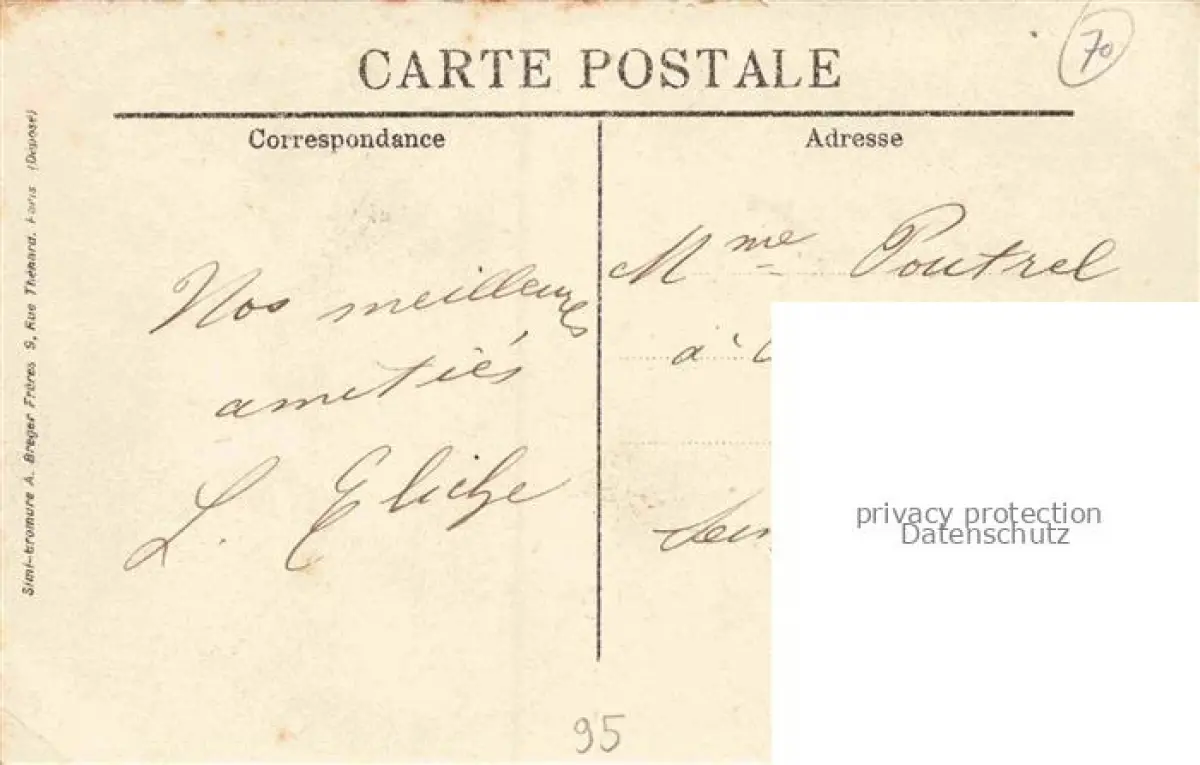 CARTE POSTALE
70
Correspondance
Adresse
Nos meilleures
amitiés
L. Eliche
Mme Poutrel
à
privacy protection
Datenschutz
95
Simi-bromure A. Breger Frères 9, Rue Thénard. Paris (Déposé)